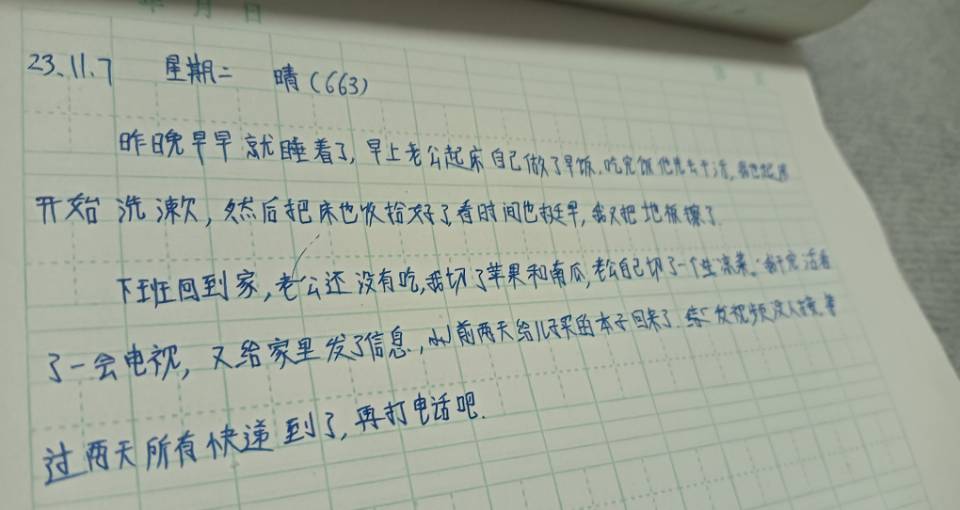 年 月 日
23.11.7 星期二 晴(663)
昨晚早早就睡着了,早上老公起床自己做了早饭.吃完饭他先去干活,我也起床
开始洗漱,然后把床也收拾好了看时间也挺早,我又把地板擦了.
下班回到家,老公还没有吃,我切了苹果和南瓜,老公自己切了一个生凉菜.我干完活看
了一会电视,又给家里发了信息.,前两天给儿子买的本子回来了.给发视频没人接,等
过两天所有快递到了,再打电话吧.